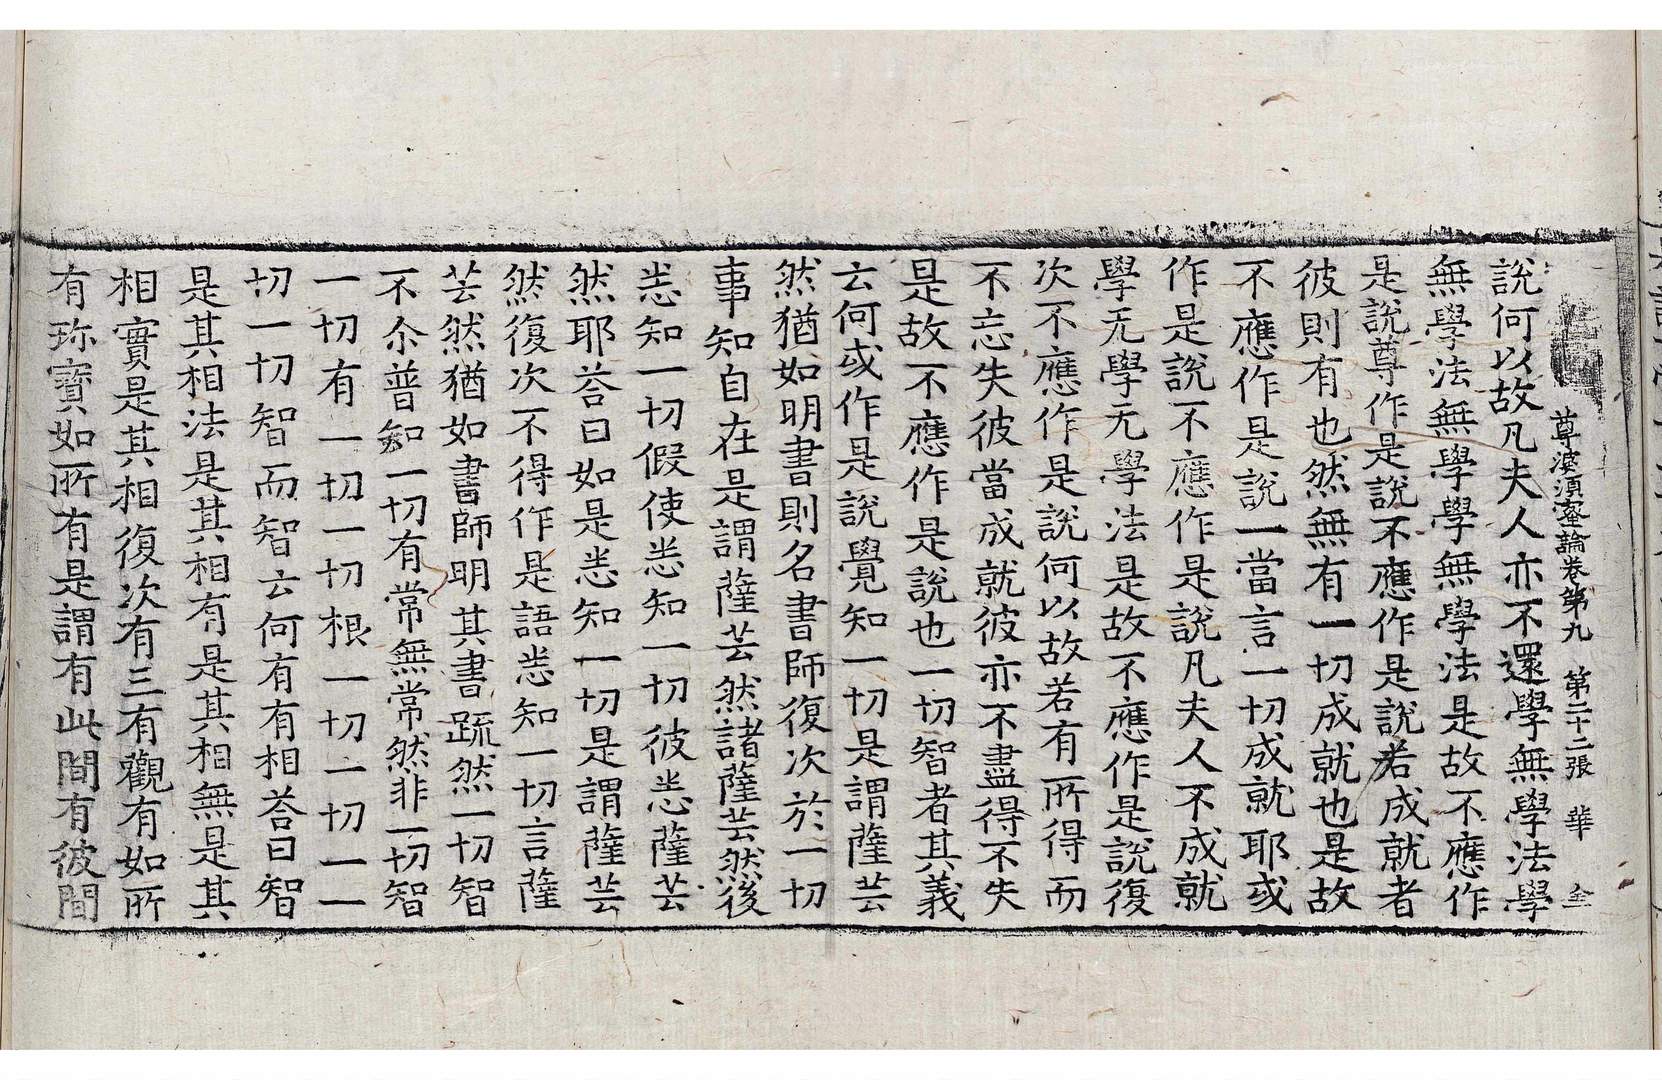 尊婆須蜜論卷第九 第二十二張 華
說何以故凡夫人亦不還學無學法學
無學法無學學無學法是故不應作
是說尊作是說不應作是說若成就者
彼則有也然無有一切成就也是故
不應作是說一當言一切成就耶或
作是說不應作是說凡夫人不成就
學无學无學法是故不應作是說復
次不應作是說何以故若有所得而
不忘失彼當成就彼亦不盡得不失
是故不應作是說也一切智者其義
云何或作是說覺知一切是謂薩芸
然猶如明書則名書師復次於一切
事知自在是謂薩芸然諸薩芸然後
恙知一切假使恙知一切彼恙薩芸
然耶荅曰如是恙知一切是謂薩芸
然復次不得作是語恙知一切言薩
芸然猶如書師明其書䟽然一切智
不尒普知一切有常無常然非一切智
一切有一切一切根一切一切一一
切一切智而智云何有有相荅曰智
是其相法是其相有是其相無是其
相實是其相復次有三有觀有如所
有珎寶如所有是謂有此間有彼間